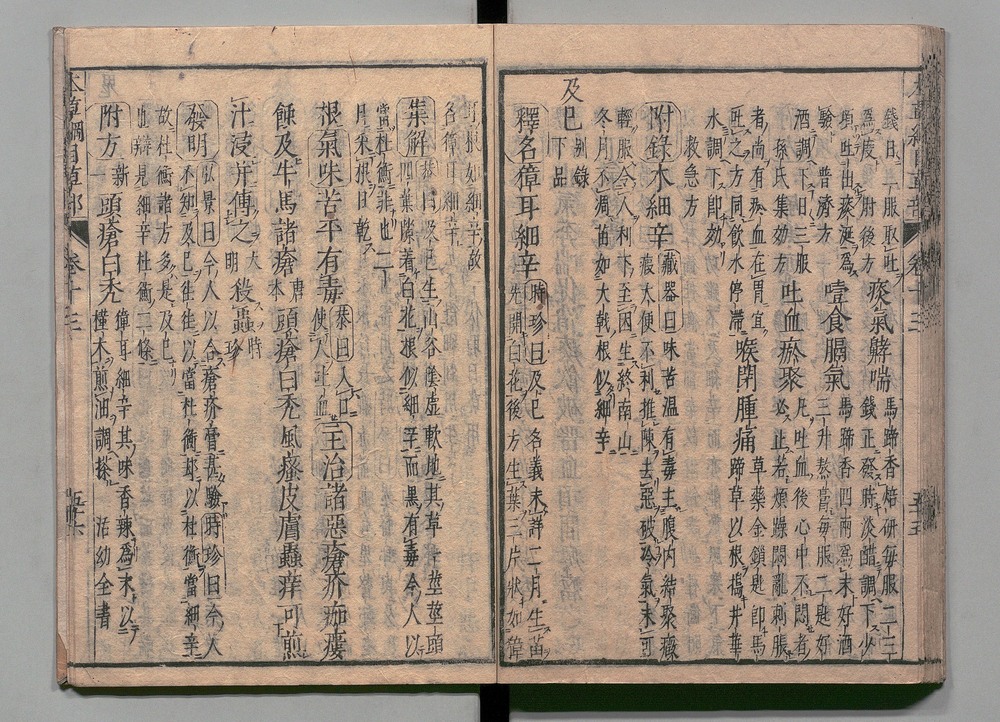 錢日二服取吐
為度肘後方
痰氣齁喘
馬蹄香焙研每服二三
錢正發時淡醋調下少
頃吐出痰涎為
驗普濟方
噎食膈氣
馬蹄香四兩為末好酒
三升熬膏每服二匙好
酒調下日三服
孫氏集効方
吐血瘀聚
凡吐血後心中不悶者
必止若煩躁悶亂刺脹
者尚有瘀血在胃宜
吐之方同飲水停滯
喉閉腫痛
草藥金鎖匙即馬
蹄草以根搗井華
水調下即効
救急方
附錄木細辛
藏器曰味苦溫有毒主腹內結聚癥
瘕大便不利推陳去惡破冷氣未可
輕服令人利下至困生終南山
冬月不凋苗如大戟根似細辛
及巳
別錄
下品
釋名獐耳細辛
時珍曰及巳名義未詳二月生苗
先開白花後方生葉三片狀如獐
耳根如細辛故
名獐耳細辛
集解
恭曰及巳生山谷陰虛軟地其草一莖莖頭
四葉隙着白花根似細辛而黑有毒今人以
當杜衡非也二
月采根日乾
根氣味苦平有毒
恭曰入口
使人吐血
主治諸惡瘡疥痂瘻
蝕及牛馬諸瘡
唐本
頭瘡白禿風瘙皮膚蟲痒可煎
汁浸并傅之
大明
殺蟲
時珍
發明
弘景曰今人以合瘡疥膏甚驗時珍曰今人
不知及巳往往以當杜衡却以杜衡當細辛
故杜衡諸方多是及巳
也辯見細辛杜衡二條
附方
新一
頭瘡白禿
獐耳細辛其味香辣為末以
槿木煎油調搽 活幼全書
本草綱目草部 卷十三 五十六